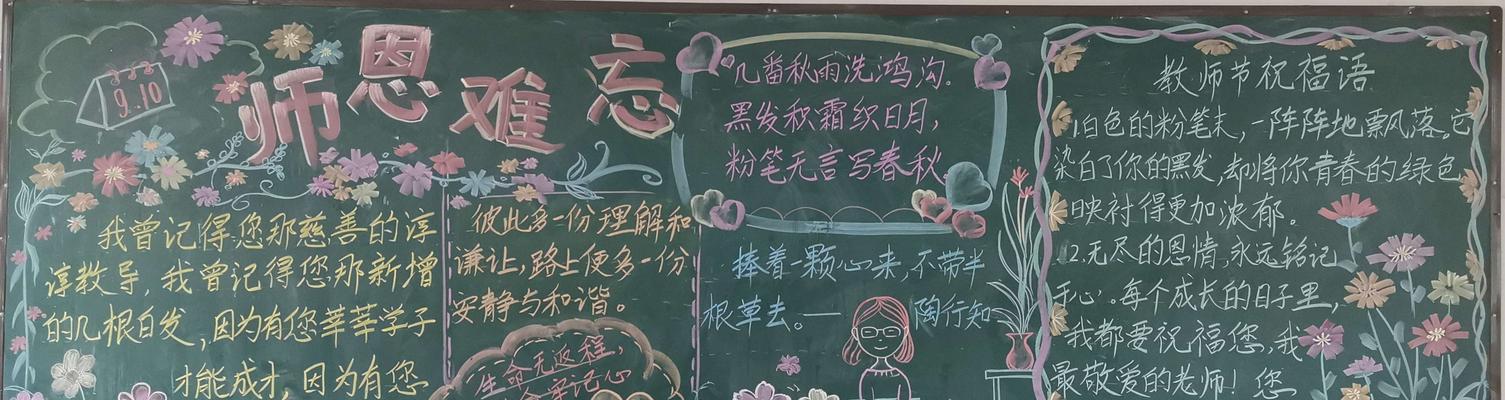 9.10
师恩难忘
我曾记得您那慈善的淳
淳教导，我曾记得您那新增
的几根白发，因为有您莘莘学子
才能成才，因为有您
彼此多一份理解和
谦让，路上便多一份
安静与和谐。
生命无返程，
牢记心
几番秋雨洗鸿沟.
黑发积霜织日月，
粉笔无言写春秋。
捧着一颗心来，不带半
根草去。—陶行知
教师节祝福语
1.白色的粉笔末，一阵阵地飘落。它
染白了你的黑发，却将你青春的绿色
映衬得更加浓郁。
2.无尽的恩情，永远铭记
于心。每个成长的日子里，
我都要祝福您，我
最敬爱的老师！您